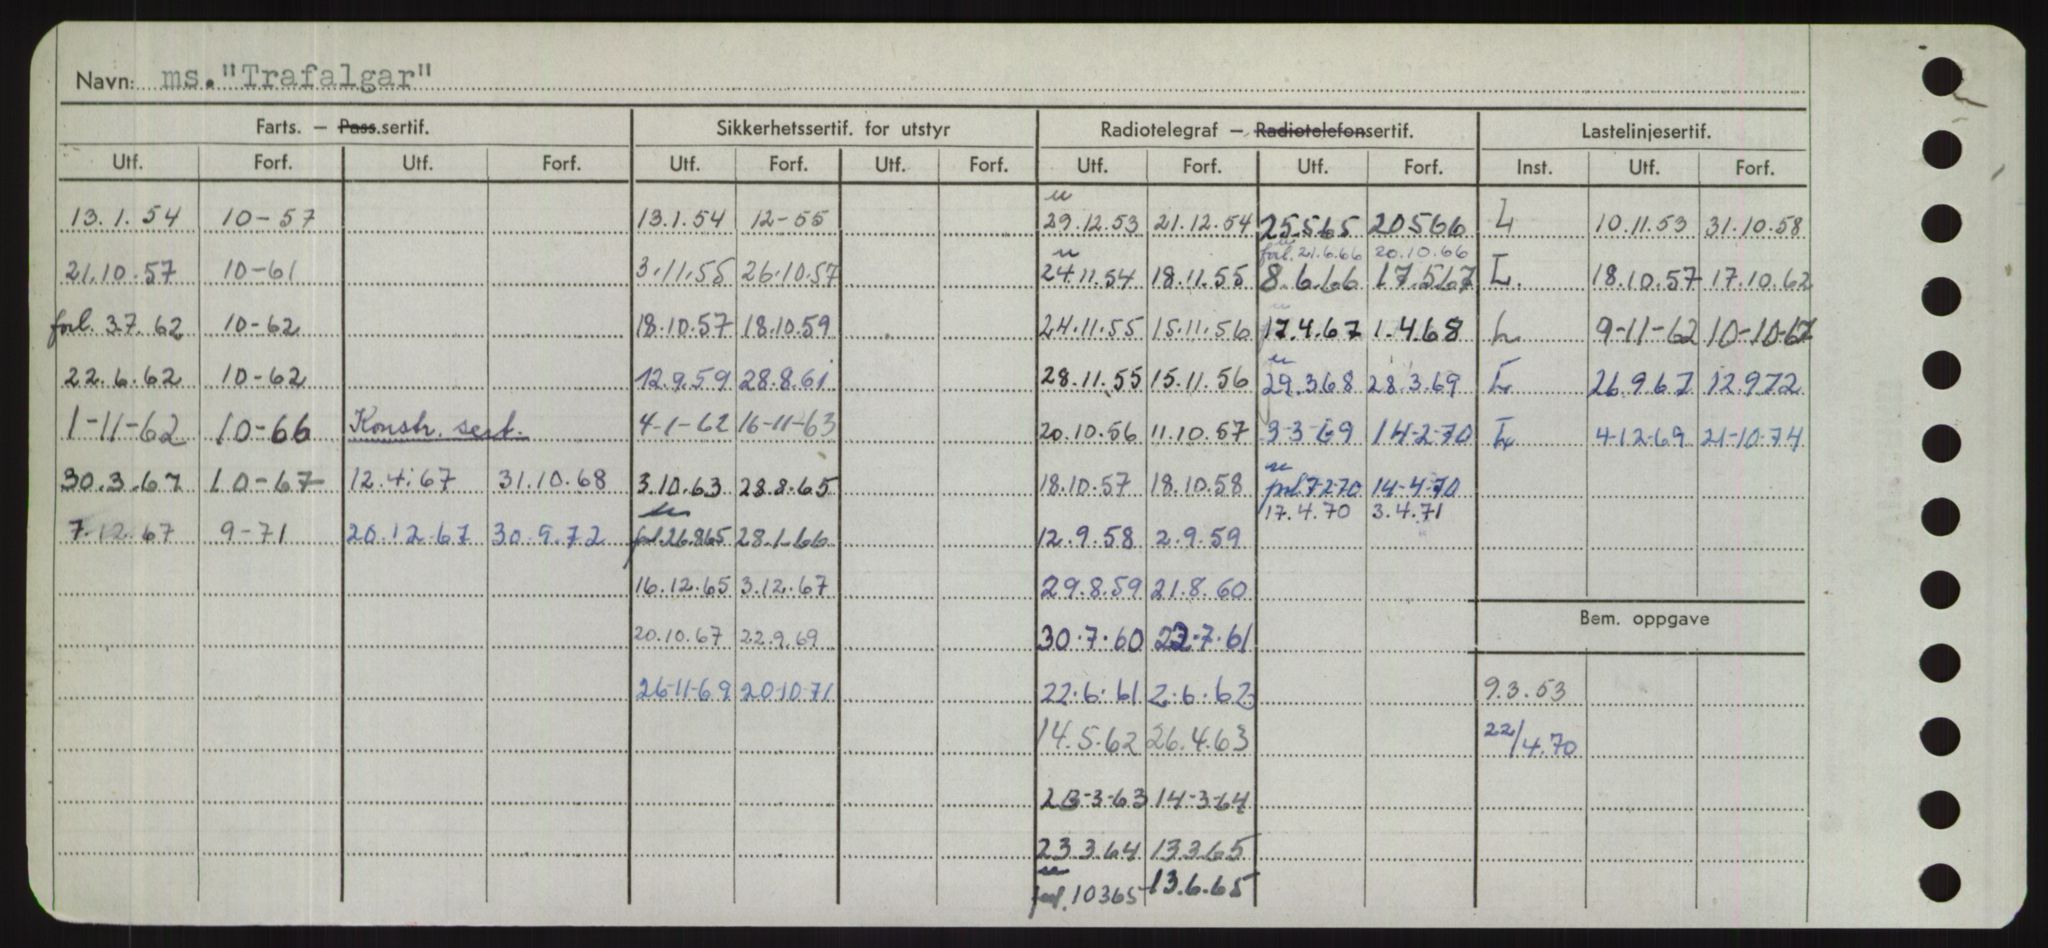 Navn: ms."Trafalgar"
Farts. — Pass.sertif. Sikkerhetssertif. for utstyr Radiotelegraf — Radiotelefonsertif. Lastelinjesertif.
Utf. Forf. Utf. Forf. Utf. Forf. Utf. Forf. Utf. Forf. Utf. Forf. Inst. Utf. Forf.
13.1.54 10-57 13.1.54 12-55 29.12.53 21.12.54 25.5.65 20566 L 10.11.53 31.10.58
forl. 21.6.66 20.10.66
21.10.57 10-61 3.11.55 26.10.57 24.11.54 18.11.55 8.6.66 17.5.67 L. 18.10.57 17.10.62
forl. 3.7.62 10-62 18.10.57 18.10.59 24.11.55 15.11.56 17.4.67 1.4.68 L 9-11-62 10-10-67
22.6.62 10-62 12.9.59 28.8.61 28.11.55 15.11.56 29.3.68 28.3.69 L 26.9.67 12.9.72
1-11-62 10-66 Konstr. sert. 4-1-62 16-11-63 20.10.56 11.10.57 3-3-69 14-2-70 L 4-12-69 21-10-74
30.3.67 10-67 12.4.67 31.10.68 3.10.63 28.8.65 18.10.57 18.10.58 forl. 7-2-70 14-4-70
17.4.70 3.4.71
7.12.67 9-71 20.12.67 30.9.72 forl. 26.8.65 28.1.66 12.9.58 2.9.59
16.12.65 3.12.67 29.8.59 21.8.60
Bem. oppgave
20.10.67 22.9.69 30.7.60 22.7.61
26-11-69 20-10-71 22.6.61 2.6.62 9.3.53
14.5.62 26.4.63 22/4.70
23-3-63 14-3-64
23 3 64 13 3 65
forl. 10365 13.6.65